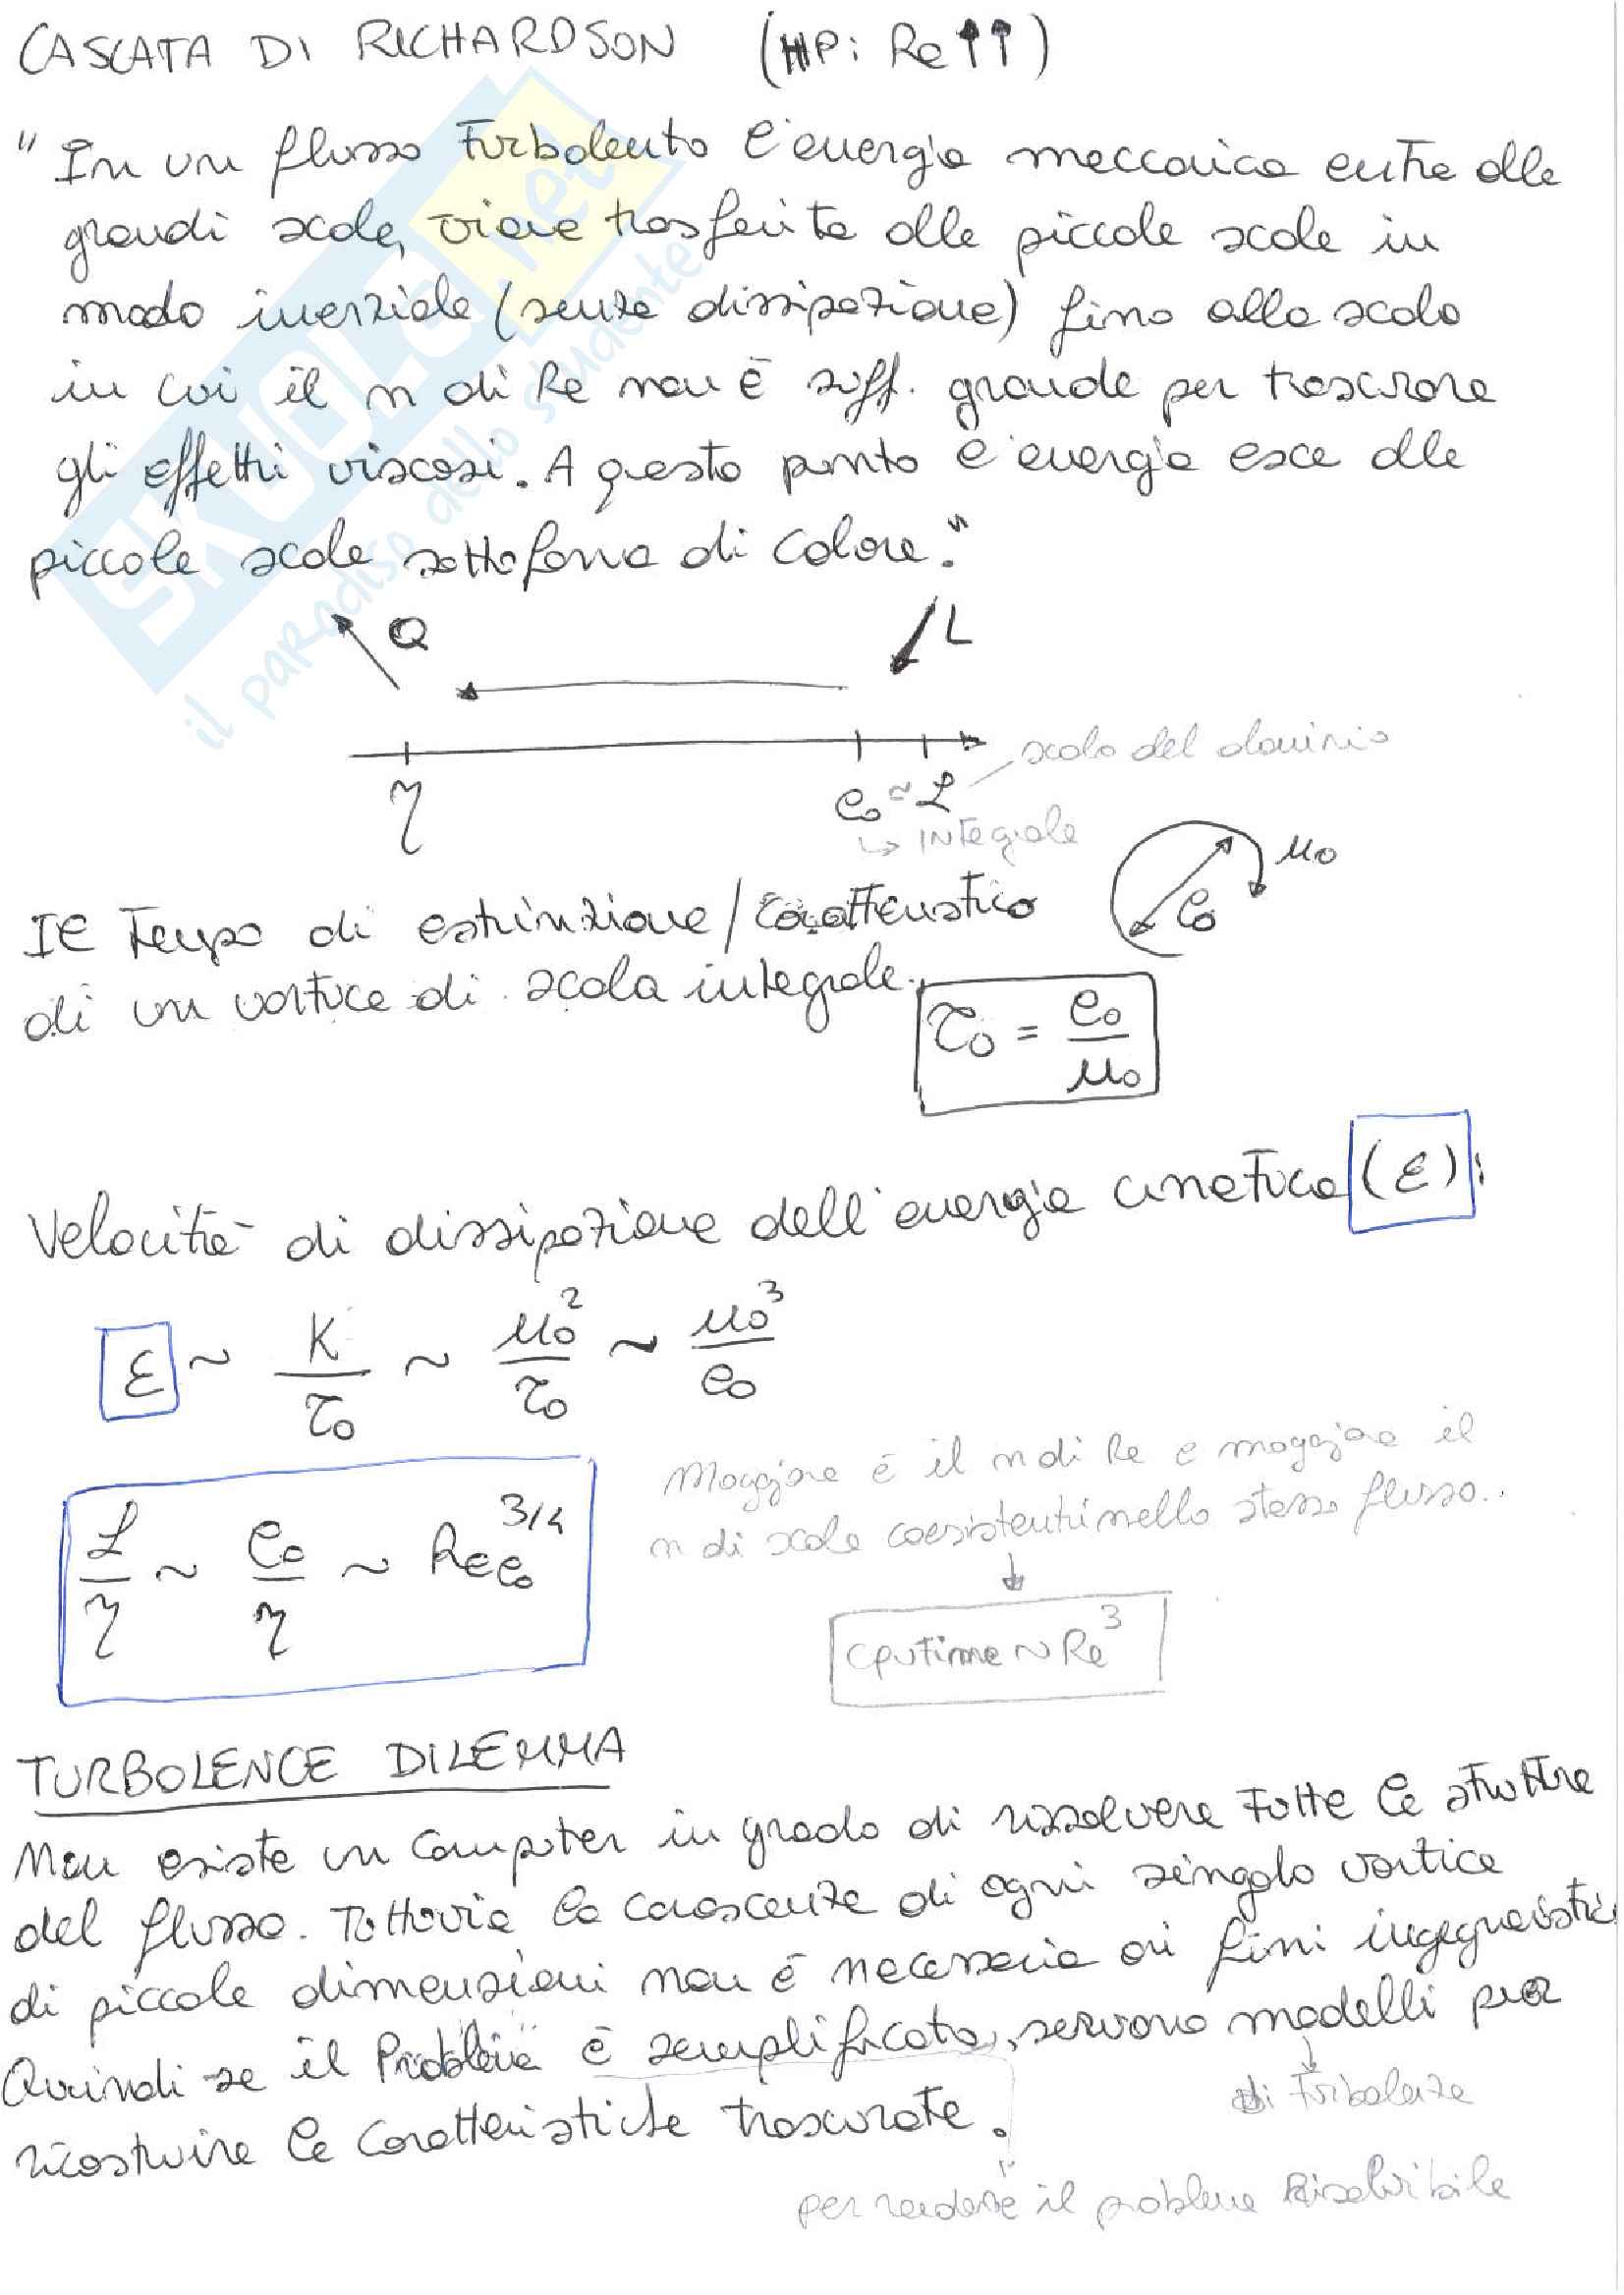 CASCATA DI RICHARDSON (HP: Re↑↑)
"In un flusso turbolento l'energia meccanica entra alle
grandi scale, viene trasferita alle piccole scale in
modo inerziale (senza dissipazione) fino alla scala
in cui il n di Re non è suff. grande per trascurare
gli effetti viscosi. A questo punto l'energia esce alle
piccole scale sottoforma di calore."
Q L
η l₀ ≈ L scala del dominio
↳ INTegrale
Il Tempo di estinzione/caratteristico
di un vortice di scala integrale.
l₀ u₀
τ₀ = l₀/u₀
Velocità di dissipazione dell'energia cinetica (ε):
ε ~ K/τ₀ ~ u₀²/τ₀ ~ u₀³/l₀
L/η ~ l₀/η ~ Re_l₀^3/4
Maggiore è il n di Re e maggiore il
n di scale coesistenti nello stesso flusso..
↓
cputime ~ Re³
TURBOLENCE DILEMMA
Non esiste un computer in grado di risolvere tutte le strutture
del flusso. Tuttavia la conoscenza di ogni singolo vortice
di piccole dimensioni non è necessaria ai fini ingegneristici
Quindi se il Problema è semplificato, servono modelli per
di Turbolenza
ricostruire le caratteristiche trascurate.
per rendere il problema Risolvibile
SKUOLA.net
il paradiso dello studente